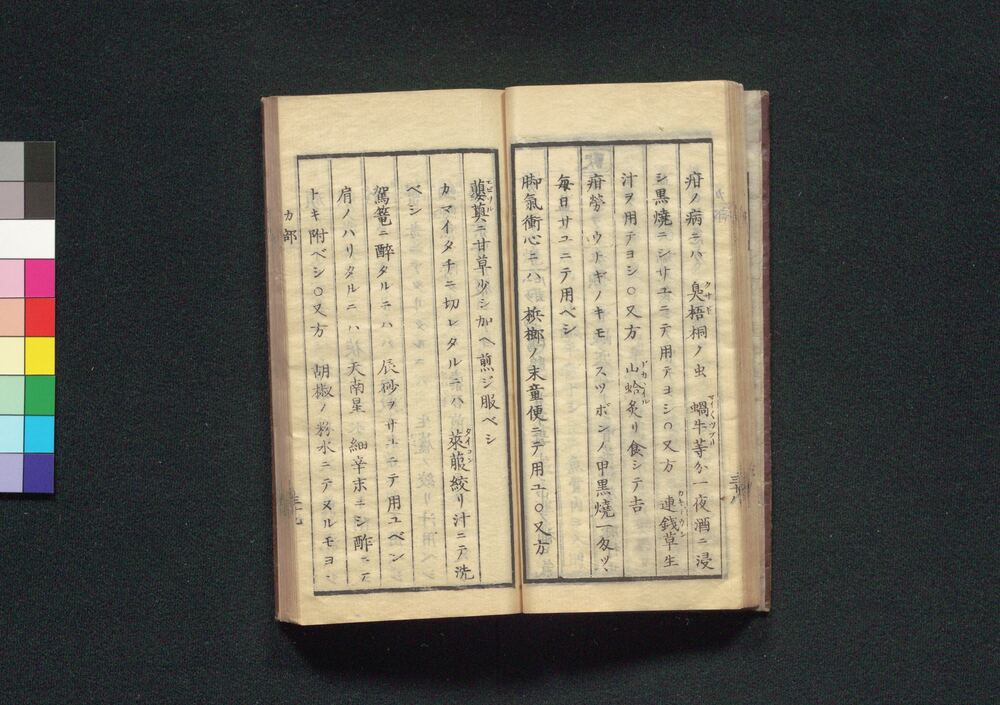 疳ノ病ニハ　臭梧桐ノ虫　蝸牛等分一夜酒ニ浸
シ黒燒ニシサユニテ用テヨシ○又方　連錢草生
汁ヲ用テヨシ○又方　山蛤炙リ食シテ吉
疳勞　ウナギノキモ　スッポンノ甲黒燒一匁ツヽ
毎日サユニテ用ベシ
脚氣衝心ニハ　檳榔ノ末童便ニテ用ユ○又方
蘡薁ニ甘草少シ加ヘ煎ジ服ベシ
カマイタチニ切レタルニハ　萊菔絞リ汁ニテ洗
ベシ
駕篭ニ醉タルニハ　辰砂ヲサユニテ用ユベシ
肩ノハリタルニハ　天南星　細辛末ニシ酢ニテ
トキ附ベシ○又方　胡椒ノ粉水ニテヌルモヨシ
カ部